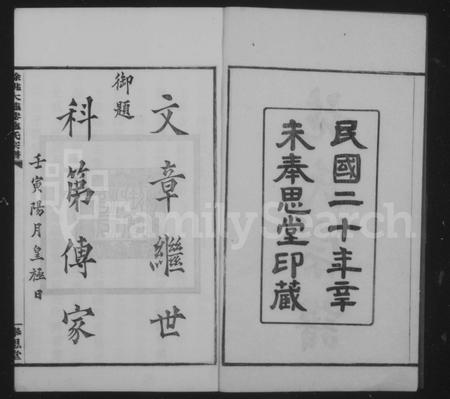 民國二十年辛
未奉思堂印藏
御題
文章繼世
科第傳家
壬寅陽月皇極日
奉思堂
FamilySearch